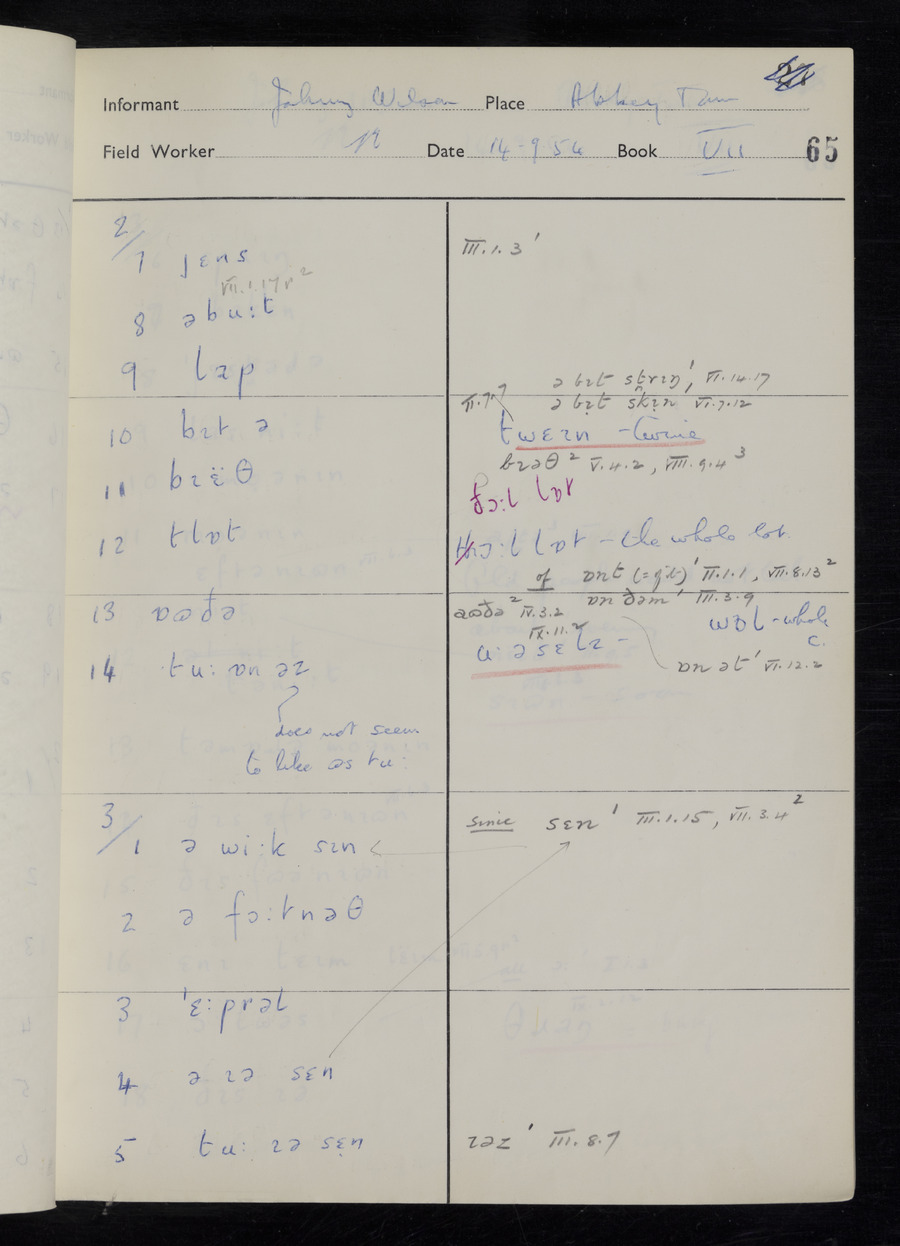 Informant Johnny Wilson Place Abbey Town
Field Worker Date 14-9 54 Book VII 65
2/
7 jɛns
VII.1.17
8 əbu:t
9 lap
10 bɪt ə
11 brɛ̈θ
12 tlɒt
13 ɒʊðə
14 tu: ɒn əz
does not seem
to like əs tu:
3/
1 ə wi:k sɪn
2 ə fɔ:tnəθ
3 'ɛ:prəl
4 ə ɪə sɛn
5 tu: ɪə sɛn
III.1.3 '
ə bɪt strɪŋ', VI.14.17
II.7.7 ə bɪt skɪn VI.7.12
twɛɪn - twine
brəθ ² V.4.2, VIII.9.4 ³
fɔ:l lɒt
hɔ:l lɒt - the whole lot
of ɒnt (= of it) ' II.1.1, VII.8.13 ²
ɒn ðəm ' III.3.9
aʊðə ² IV.3.2
IX.11.2
wɒl - whole
u:əsɛlz -
ɒn ət ' VI.12.2
since sɛn ' III.1.15, VII.3.4 ²
ɪəz ' III.8.7